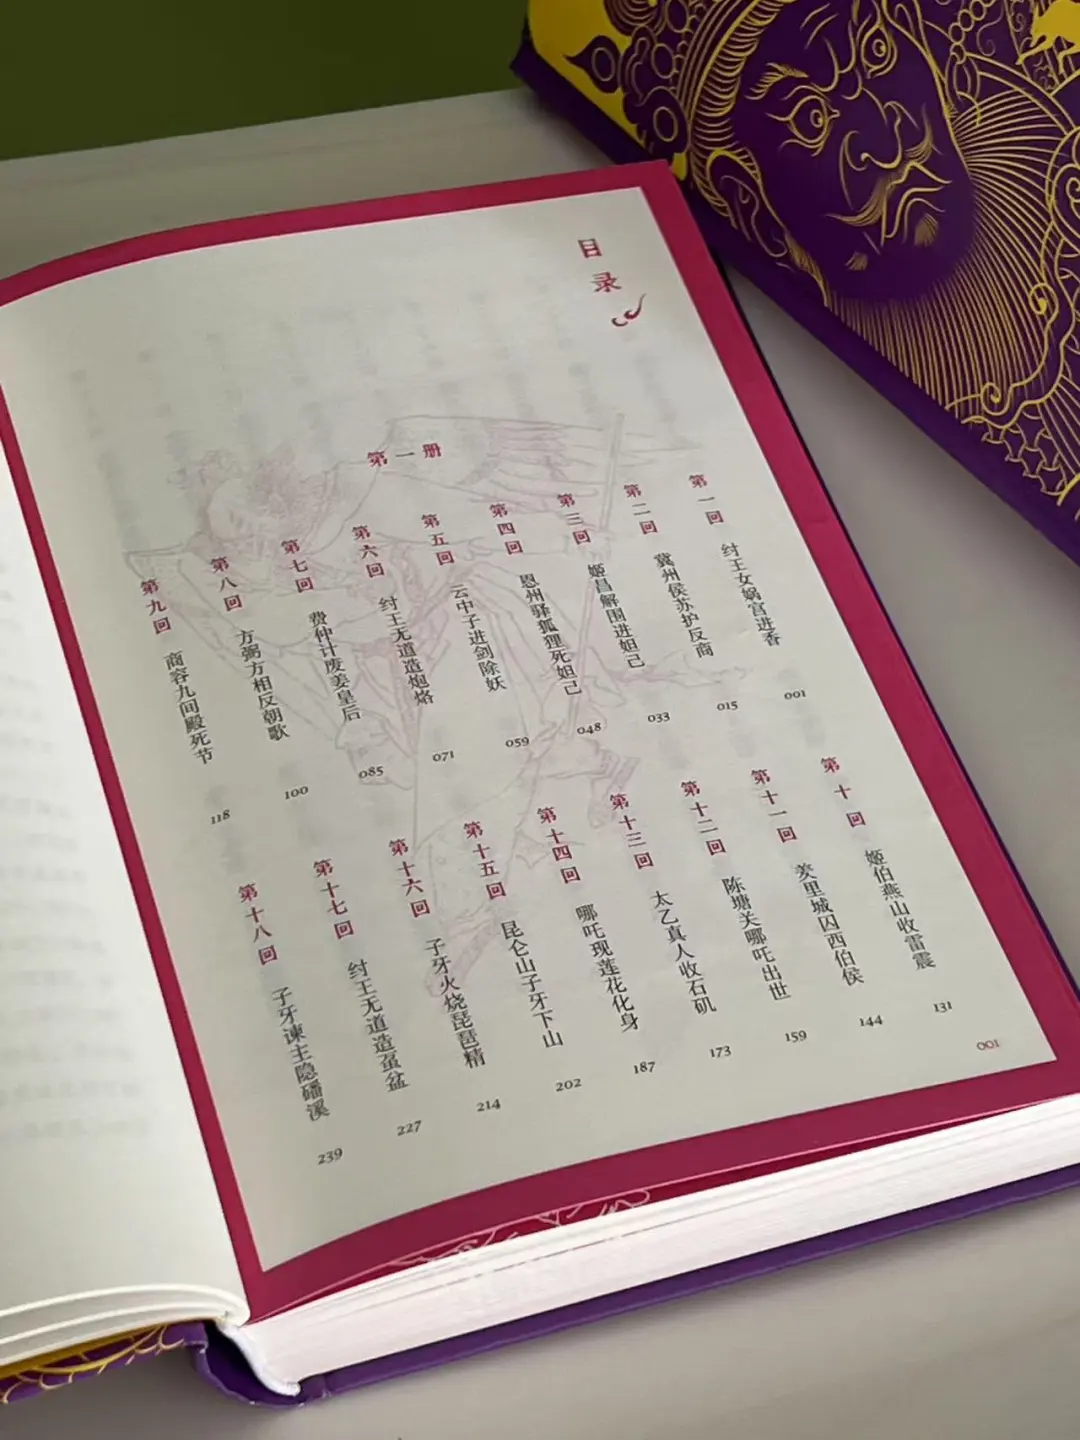 目录
第一册
第一回 纣王女娲宫进香 001
第二回 冀州侯苏护反商 015
第三回 姬昌解围进妲己 033
第四回 恩州驿狐狸死妲己 048
第五回 云中子进剑除妖 059
第六回 纣王无道造炮烙 071
第七回 费仲计废姜皇后 085
第八回 方弼方相反朝歌 100
第九回 商容九间殿死节 118
第十回 姬伯燕山收雷震 131
第十一回 羑里城囚西伯侯 144
第十二回 陈塘关哪吒出世 159
第十三回 太乙真人收石矶 173
第十四回 哪吒现莲花化身 187
第十五回 昆仑山子牙下山 202
第十六回 子牙火烧琵琶精 214
第十七回 纣王无道造虿盆 227
第十八回 子牙谏主隐磻溪 239
001